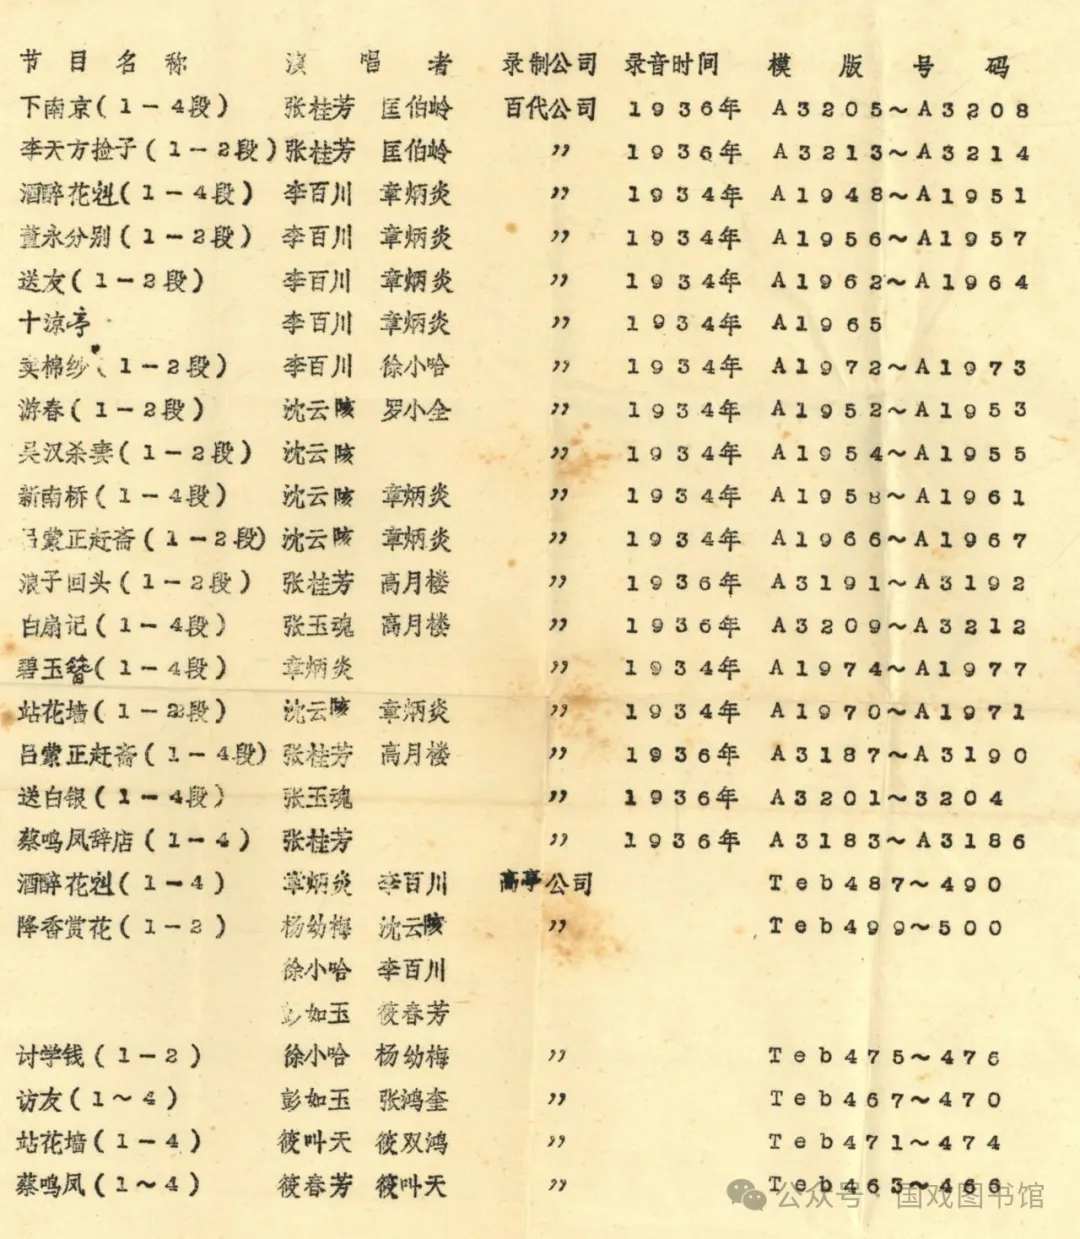 节目名称 演唱者 录制公司 录音时间 模版号码
下南京(1-4段) 张桂芳 匡伯岭 百代公司 1936年 A3205~A3208
李天方捡子(1-2段) 张桂芳 匡伯岭 〃 1936年 A3213~A3214
酒醉花魁(1-4段) 李百川 章炳炎 〃 1934年 A1948~A1951
董永分别(1-2段) 李百川 章炳炎 〃 1934年 A1956~A1957
送友(1-2段) 李百川 章炳炎 〃 1934年 A1962~A1964
十凉亭 李百川 章炳炎 〃 1934年 A1965
卖棉纱(1-2段) 李百川 徐小哈 〃 1934年 A1972~A1973
游春(1-2段) 沈云陔 罗小全 〃 1934年 A1952~A1953
吴汉杀妻(1-2段) 沈云陔 〃 1934年 A1954~A1955
新南桥(1-4段) 沈云陔 章炳炎 〃 1934年 A1958~A1961
吕蒙正赶斋(1-2段) 沈云陔 章炳炎 〃 1934年 A1966~A1967
浪子回头(1-2段) 张桂芳 高月楼 〃 1936年 A3191~A3192
白扇记(1-4段) 张玉魂 高月楼 〃 1936年 A3209~A3212
碧玉簪(1-4段) 章炳炎 〃 1934年 A1974~A1977
站花墙(1-2段) 沈云陔 章炳炎 〃 1934年 A1970~A1971
吕蒙正赶斋(1-4段) 张桂芳 高月楼 〃 1936年 A3187~A3190
送白银(1-4段) 张玉魂 〃 1936年 A3201~3204
蔡鸣凤辞店(1-4) 张桂芳 〃 1936年 A3183~A3186
酒醉花魁(1-4) 章炳炎 李百川 高亭公司 Teb487~490
降香赏花(1-2) 杨幼梅 沈云陔 〃 Teb499~500
徐小哈 李百川
彭如玉 筱春芳
讨学钱(1-2) 徐小哈 杨幼梅 〃 Teb475~476
访友(1~4) 彭如玉 张鸿奎 〃 Teb467~470
站花墙(1-4) 筱叫天 筱双鸿 〃 Teb471~474
蔡鸣凤(1~4) 筱春芳 筱叫天 〃 Teb463~466
公众号·国戏图书馆